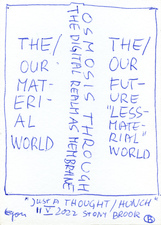 THE/
OUR
MAT-
ERI-
AL
WORLD
OSMOSIS THROUGH
THE DIGITAL REALM AS MEMBRANE
THE/
OUR
FUT-
URE
"LESS-
MATE-
RIAL"
WORLD
"JUST A THOUGHT / HUNCH"
11 V 2022 STONY BROOK